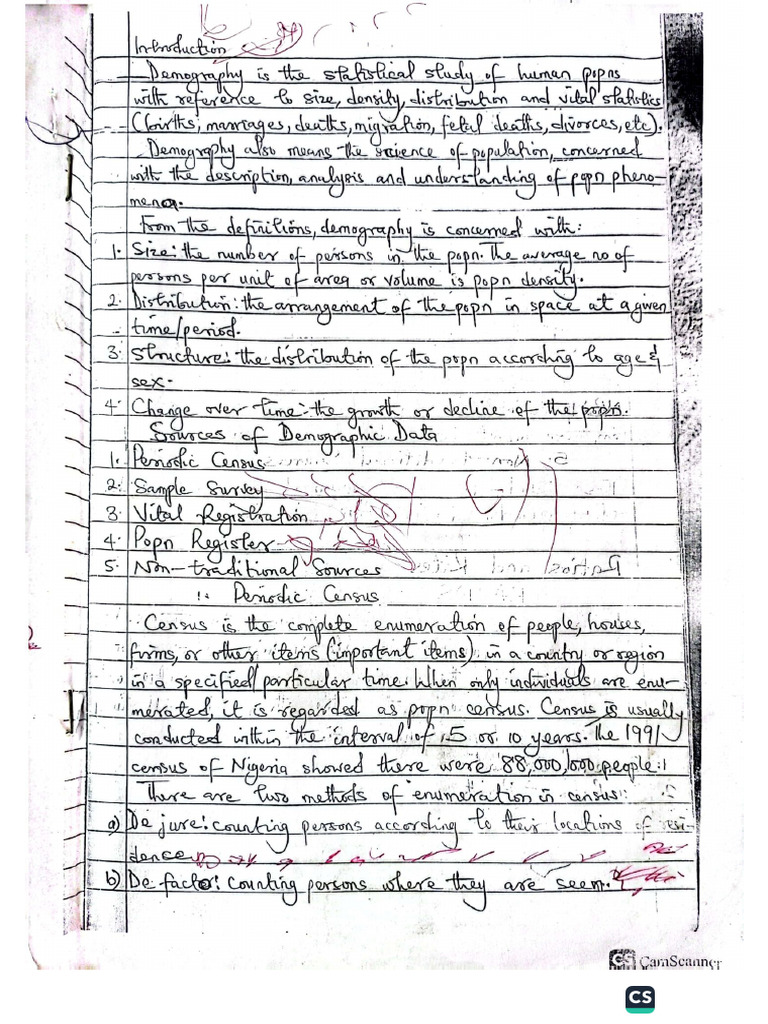 Introduction
Demography is the statistical study of human popns
with reference to size, density, distribution and vital statistics
(births, marriages, deaths, migration, fetal deaths, divorces, etc).
Demography also means the science of population, concerned
with the description, analysis and understanding of popn pheno-
mena.
From the definitions, demography is concerned with:
1. Size: the number of persons in the popn. The average no of
persons per unit of area or volume is popn density.
2. Distribution: the arrangement of the popn in space at a given
time/period.
3. Structure: the distribution of the popn according to age &
sex.
4. Change over time: the growth or decline of the popn.
Sources of Demographic Data
1. Periodic Census
2. Sample Survey
3. Vital Registration
4. Popn Register
5. Non-traditional Sources
1. Periodic Census
Census is the complete enumeration of people, houses,
firms, or other items (important items) in a country or region
in a specified/particular time. When only individuals are enu-
merated, it is regarded as popn census. Census is usually
conducted within the interval of 5 or 10 years. The 1991
census of Nigeria showed there were 88,000,000 people.
There are two methods of enumeration in census:
a) De jure: counting persons according to their locations of resi-
dence
b) De facto: counting persons where they are seen.
CS CamScanner
CS